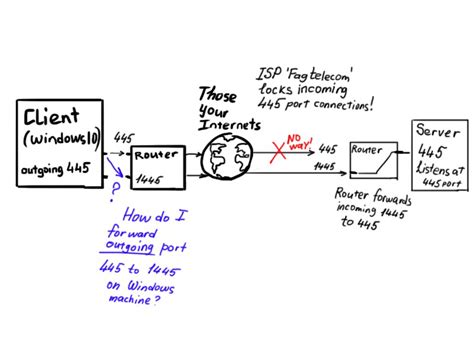 Client
(Windows10)
outgoing 445
445
Router
1445
Those
your
Internets
ISP 'Fagtelecom'
locks incoming
445 port connections!
NO
way!
445
1445
Router
Server
445
Listens at
445 port
Router forwards
incoming 1445
to 445
?
How do I
forward
outgoing port
445 to 1445
on Windows
machine?